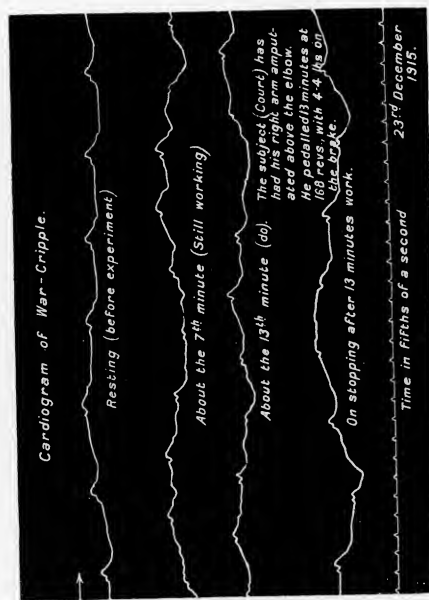 Cardiogram of War-Cripple.
Resting (before experiment)
About the 7th minute (Still working)
About the 13th minute (do).
The subject (Court) has
had his right arm amput-
ated above the elbow.
He pedalled 13 minutes at
168 revs., with 4·4 lbs on
the brake.
On stopping after 13 minutes work.
Time in fifths of a second
23rd December
1915.